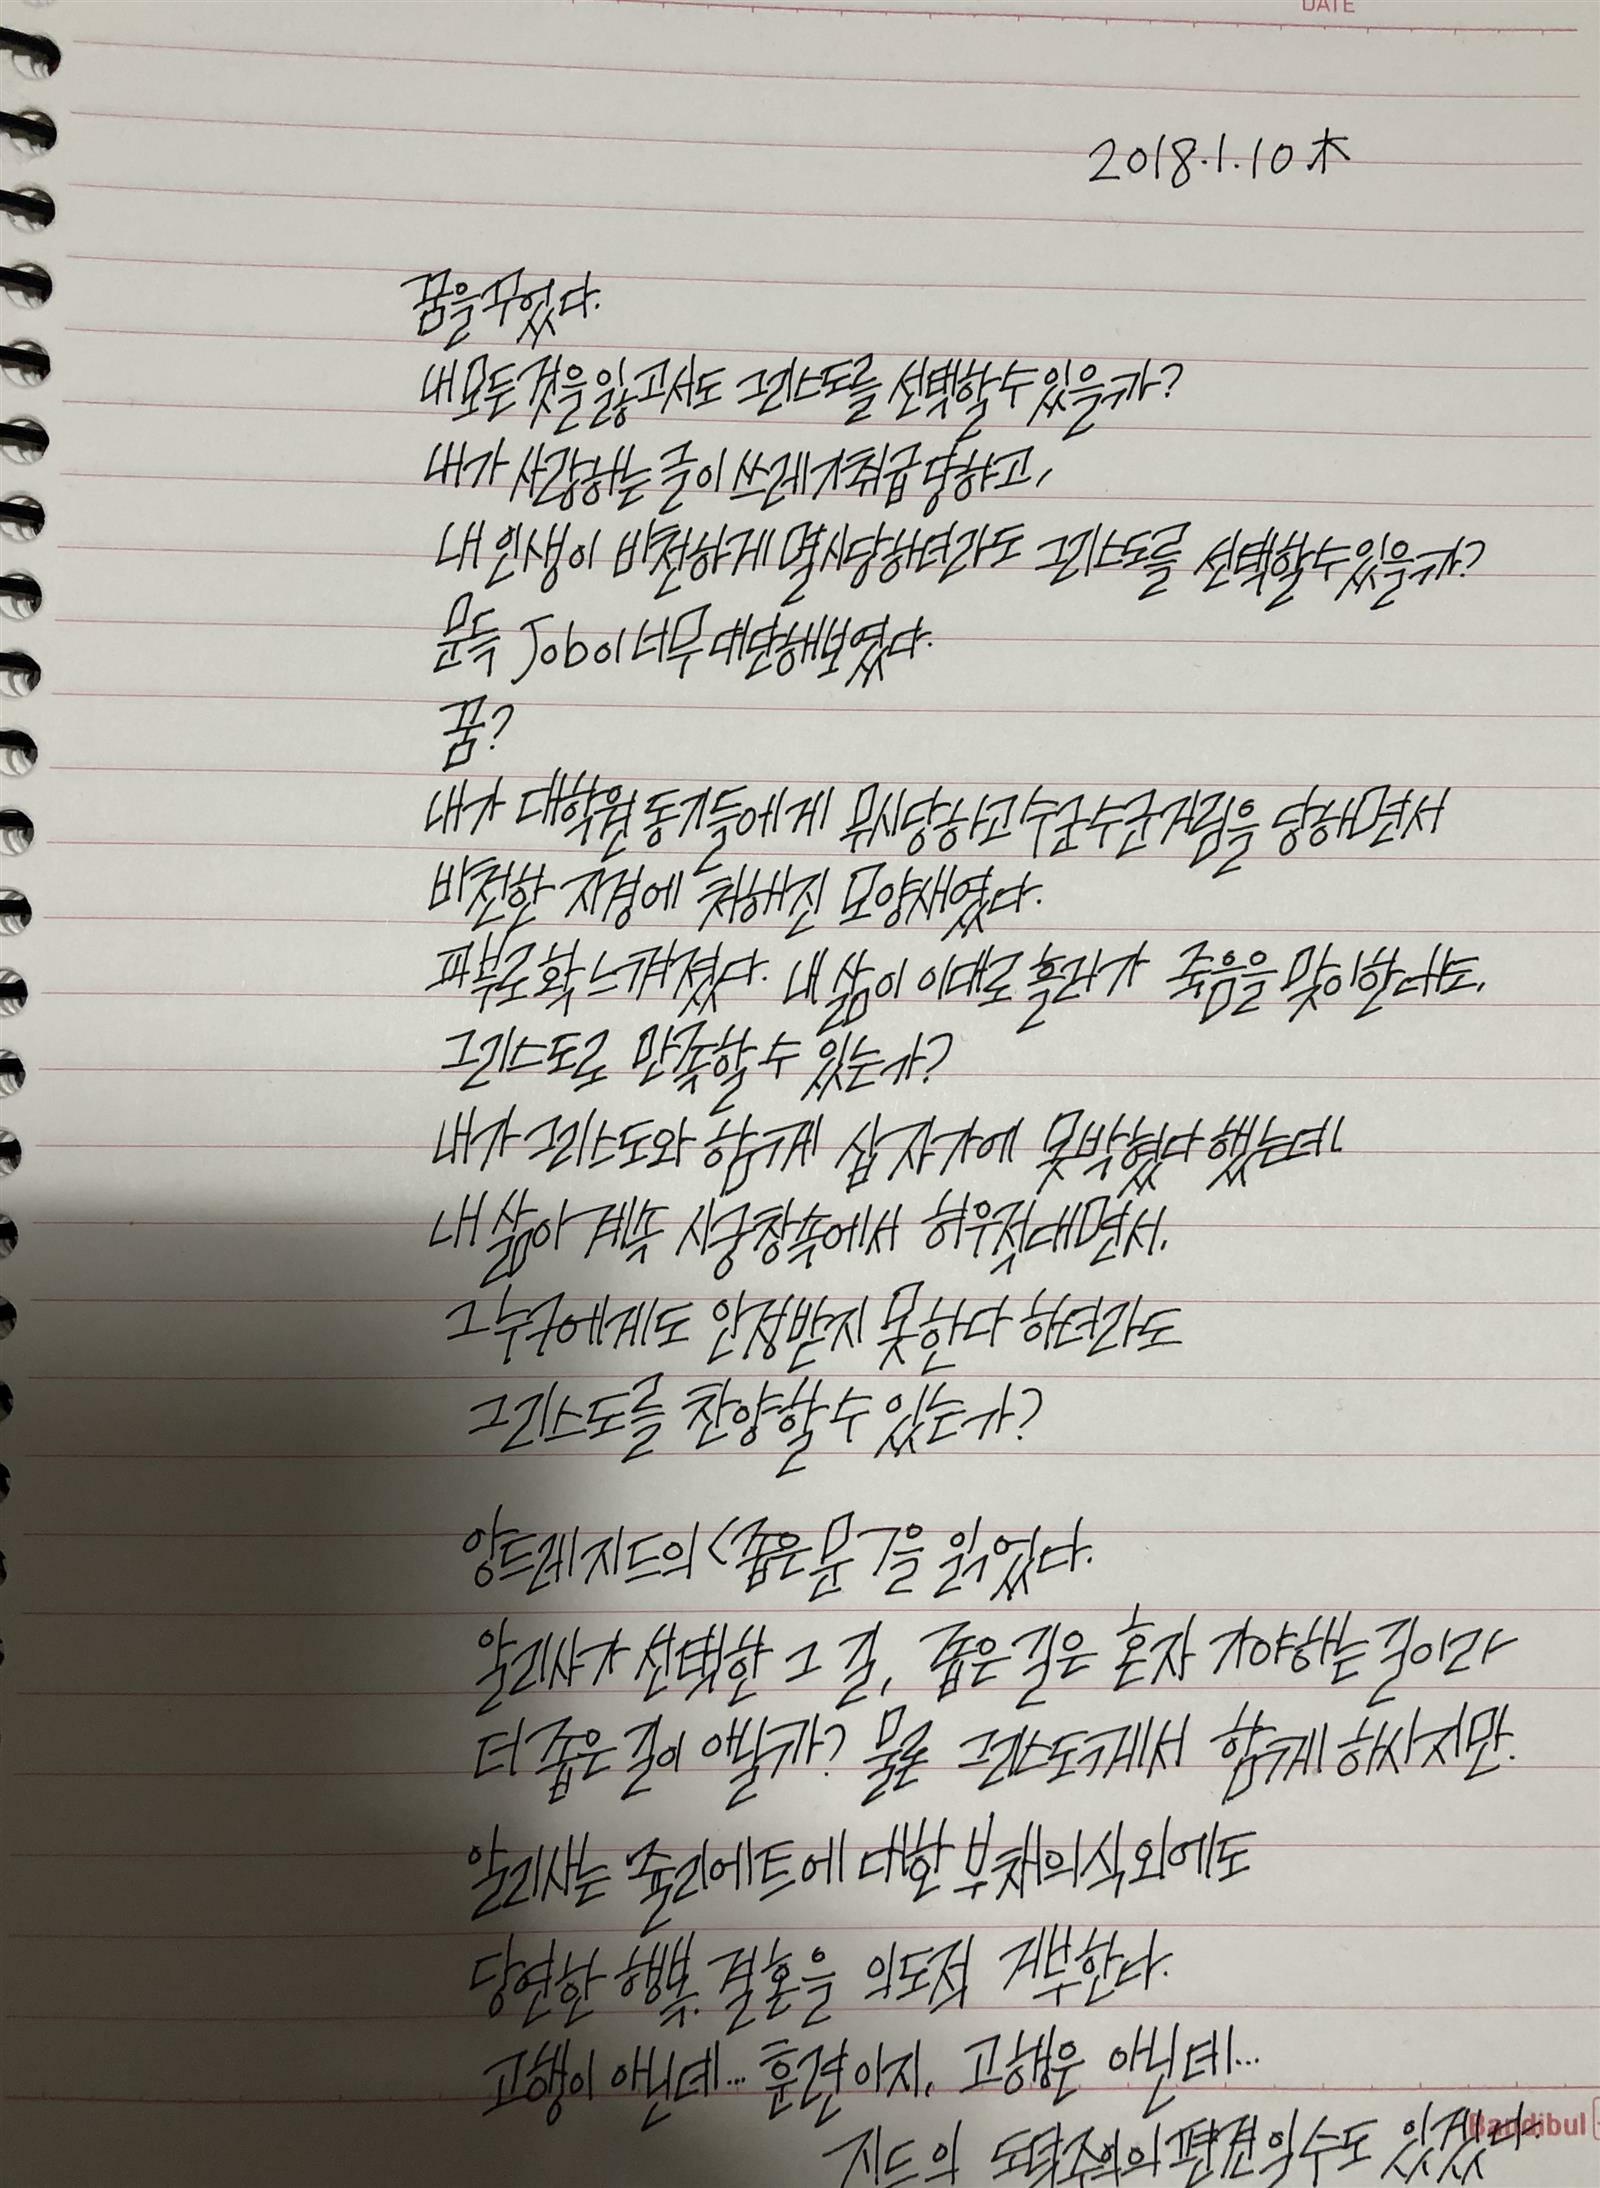 DATE
2018.1.10 木
꿈을 꾸었다.
내 모든 것을 잃고서도 그리스도를 선택할 수 있을까?
내가 사랑하는 글이 쓰레기 취급 당하고,
내 인생이 비천하게 멸시당하더라도 그리스도를 선택할 수 있을까?
문득 Job이 너무 대단해 보였다.
꿈?
내가 대학원 동기들에게 무시당하고 수군수군거림을 당하면서
비천한 지경에 처해진 모양새였다.
피부로 확 느껴졌다. 내 삶이 이대로 흘러가 죽음을 맞이한대도,
그리스도로 만족할 수 있는가?
내가 그리스도와 함께 십자가에 못박혔다 했는데.
내 삶이 계속 시궁창 속에서 허우적대면서.
그 누구에게도 인정받지 못한다 하더라도
그리스도를 찬양할 수 있는가?
앙드레 지드의 <좁은 문>을 읽었다.
알리사가 선택한 그 길, 좁은 길은 혼자 가야하는 길이라
더 좁은 길이 아닐까? 물론 그리스도께서 함께 하시지만.
알리사는 쥴리에트에 대한 부채의식 외에도
당연한 행복, 결혼을 의도적 거부한다.
고행이 아닌데... 훈련이지, 고행은 아닌데...
지드의 도덕주의의 편견일 수도 있겠다.
Bandibul